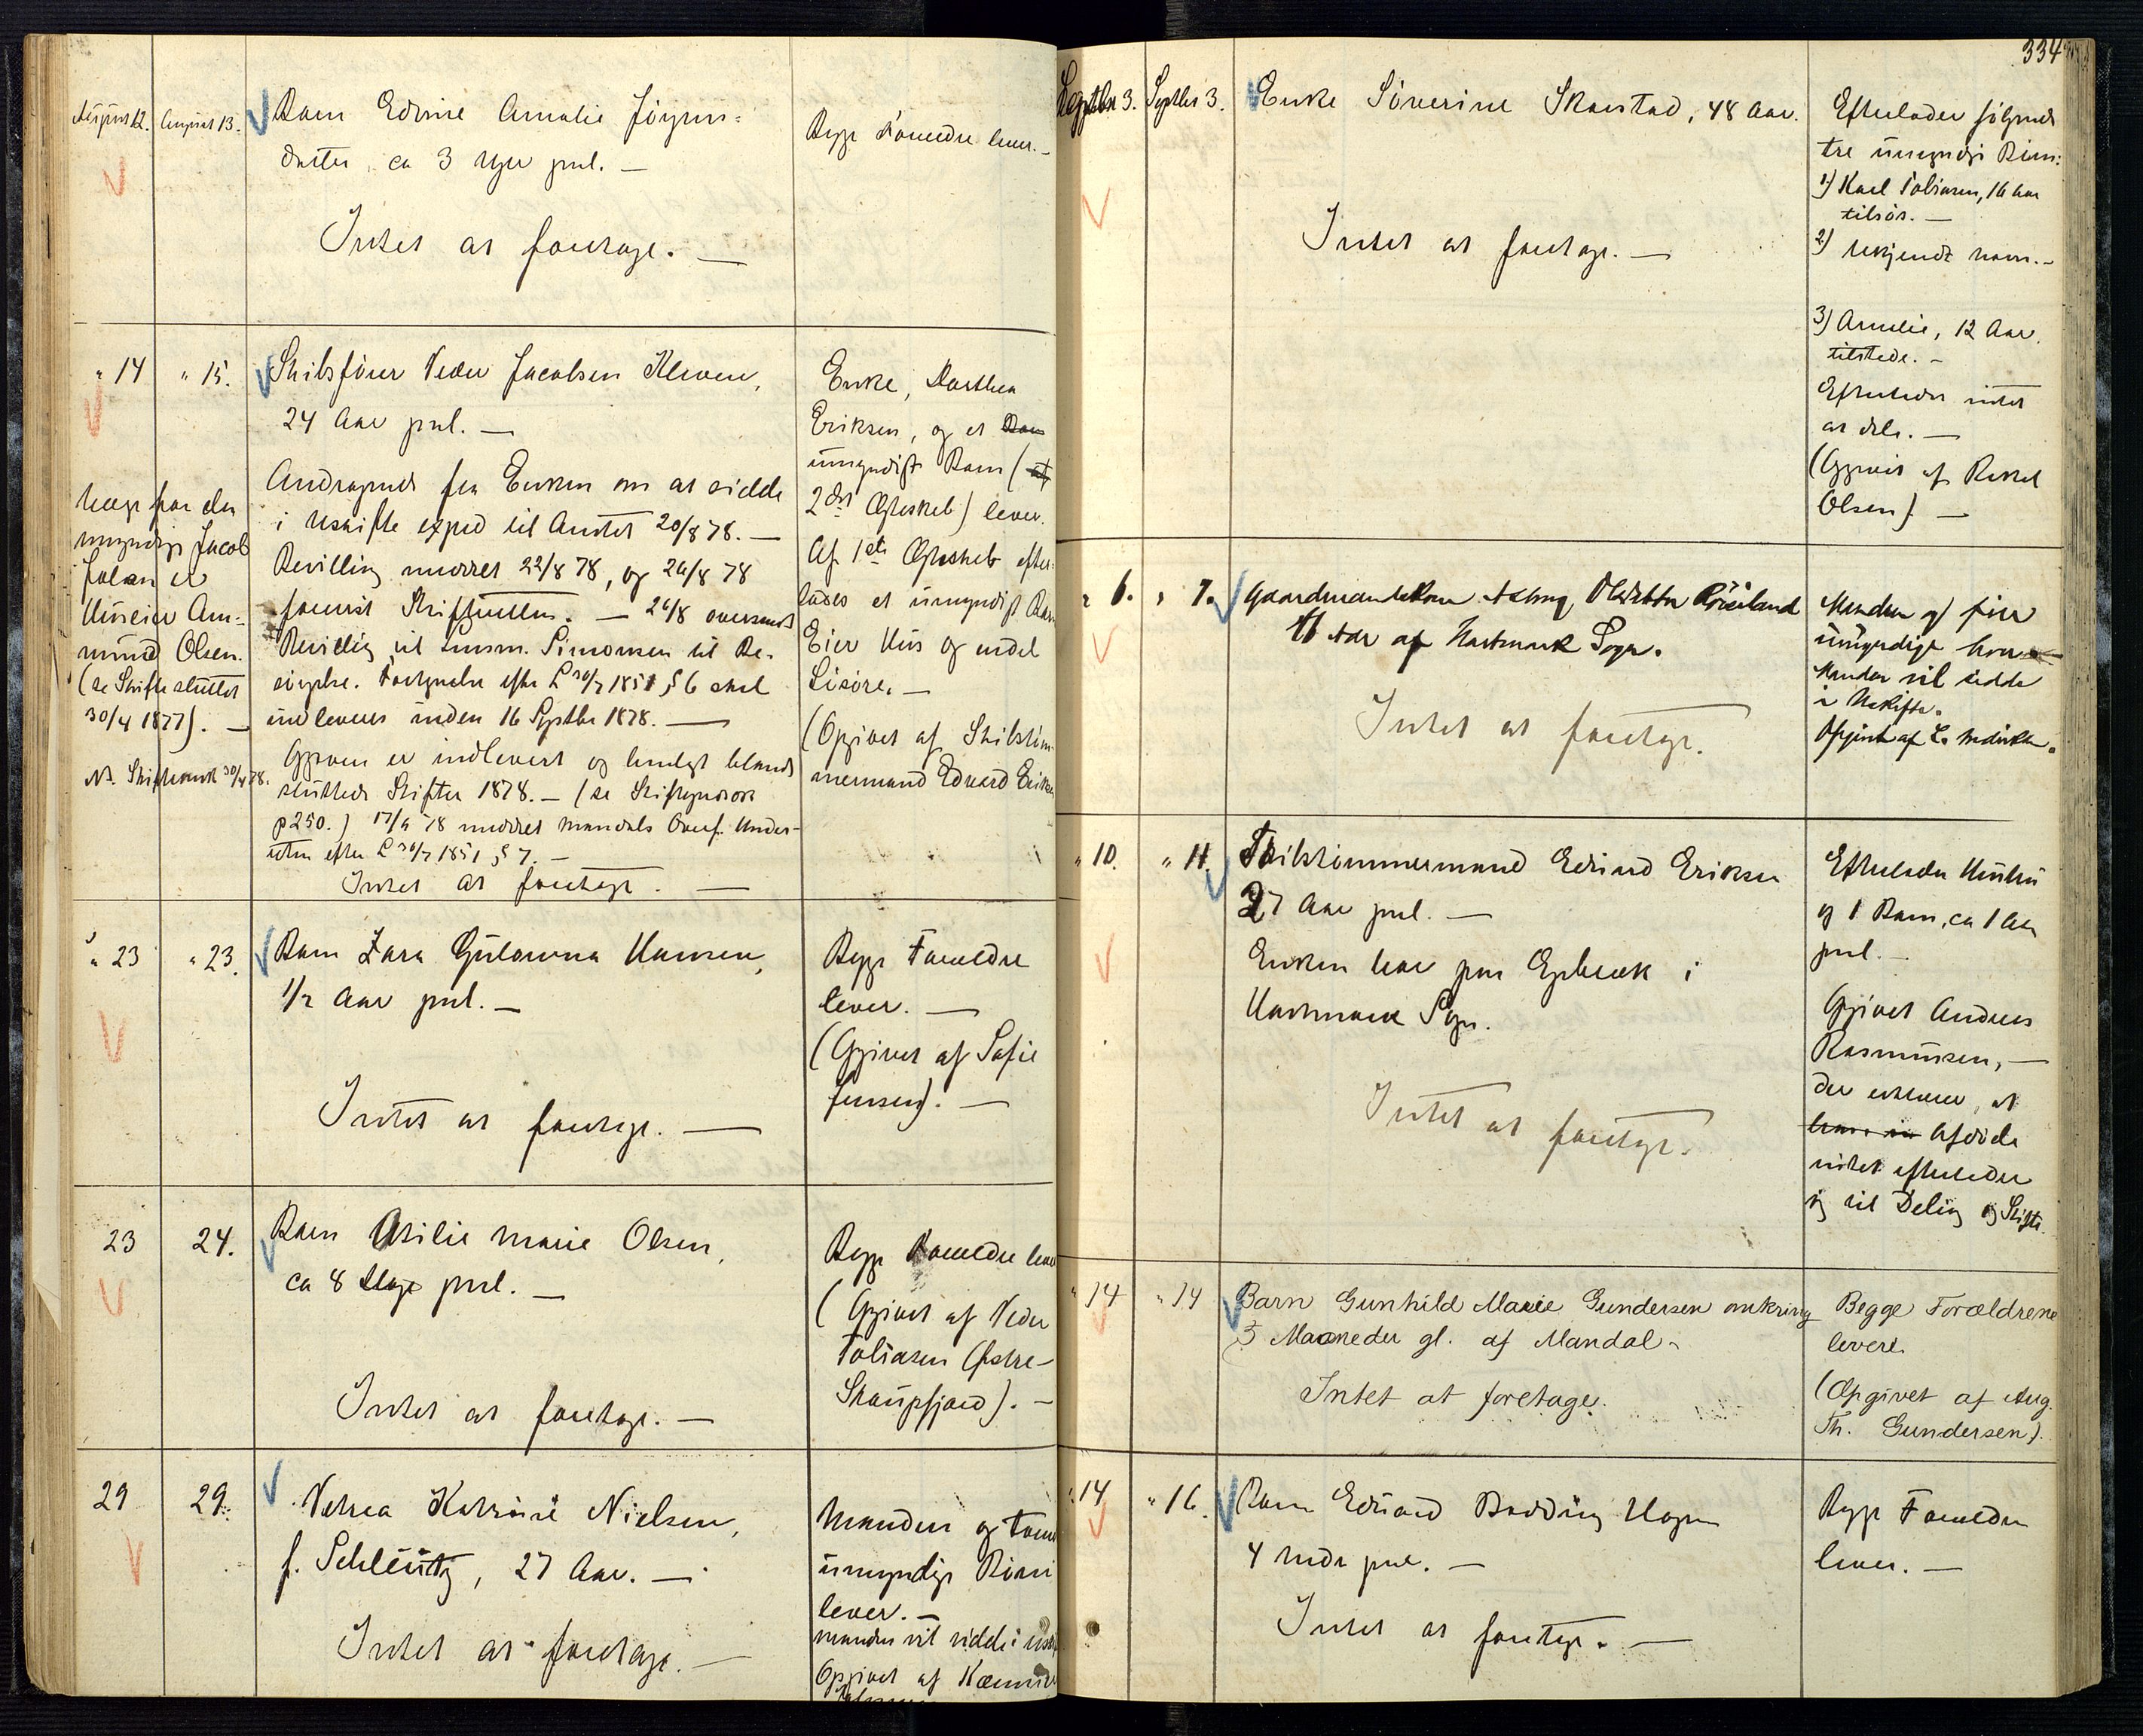 August 12. August 13. Barn Edvine Amalie Jörgens=
datter, ca 3 Uger gml. —
Intet at foretage. —
Begge Forældre lever. —
" 14 " 15. Skibsfører Peder Jacobsen Kleven,
24 Aar gml. —
Andragende fra Enken om at sidde
i Uskifte exped til Amtet 20/8 78. —
Bevilling modtet 22/8 78, og 26/8 78
forevist Skifteretten. — 26/8 oversendt
Bevilling til Lensm. Simonsen til Be-
sørgelse. Fortegnelse efter L 30/7 1851 § 6 skal
indleveres inden 16 Septbr 1878. —
Opgaven er indleveret og henlagt blandt
sluttede Skifter 1878. — (se
p 250.) 17/9 78 Mandals Overf. Under-
retn efter L 30/7 1851 § 7. —
Intet at foretage. —
Værge for den
umyndige Jacob
Johan er
Huseier Am=
mund Olsen.
(se Skifte sluttet
30/4 1877). —
NB. 30/4 78.
Enke, Dorthea
Eriksen, og et Barn
umyndigt Barn (af
2det Ægteskab) lever.
Af 1ste Ægteskab efter-
lades et umyndigt Barn
Eier Hus og endel
Løsøre. —
(Opgivet af Skibstøm-
mermand Edvard Eriksen
" 23 " 23. Barn Zara Gulowna Hansen,
1/2 Aar gml. —
Intet at foretage. —
Begge Forældre
lever. —
(Opgivet af Sofie
Jensen). —
23 24. Barn Otilie Marie Olsen,
ca 8 Dage gml. —
Intet at foretage. —
Begge Forældre lever
(Opgivet af Peder
Tobiasen Østre-
Skoupfjord). —
29 29. Petrea Katrine Nielsen,
f. Schleutz, 27 Aar. —
Intet at foretage. —
Manden og
umyndige Børn
lever. —
Manden vil sidde i
Opgivet af
334
Septbr 3. Septbr 3. Enke Sóverine Skarstad, 48 Aar.
Intet at foretage. —
Efterlader følgende
tre umyndige Børn:
1) Karl Tobiasen, 16 Aar
tilsøs. —
2) Ukjendt Navn. —
3) Amelie, 12 Aar,
tilstede. —
Efterlader intet
at dele. —
(Opgivet af Rakel
Olsen). —
" 6. " 7. Gaardmandskone Aslaug Røiseland
Aar af Hartmark Sogn.
Intet at foretage.
Manden og fire
umyndige
Manden vil sidde
i Uskifte.
Opgivet af L.
" 10. " 11. Skibstømmermand Edvard Eriksen
27 Aar gml. —
Enken bor paa Egebæk i
Hartmark Sogn.
Intet at foretage.
Efterlader Hustru
og 1 Barn, ca 1 Aar
gml. —
Opgivet Andreas
Rasmussen, —
der erklærer, at
Afdøde
intet efterlader
sig til Deling og Skifte.
" 14 " 14 Barn Gunhild Marie Gundersen omkring
5 Maaneder gl. af Mandal.
Intet at foretage.
Begge Forældrene
levere.
(Opgivet af Aug.
Th. Gundersen).
" 14 " 16. Barn Edvard Hagen
4 Mdr gml. —
Intet at foretage. —
Begge Forældre
lever. —